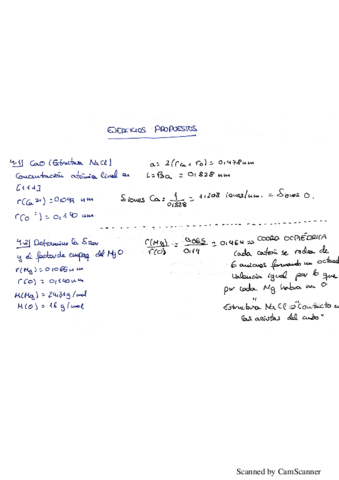 EJERCICIOS PROPUESTOS
4.1) CaO (Estructura NaCl) a = 2(rCa + rO) = 0,478 nm
Concentración atómica lineal en l = √3a = 0,828 nm
[111]
r(Ca²⁺) = 0,099 nm δiones Ca = 1/0,828 = 1,208 iones/nm = δiones O.
r(O²⁻) = 0,140 nm
4.2) Determine la r(Mg)/r(O) = 0,065/0,14 = 0,464 ⇒ COORD OCTAÉDRICA
y el factor de empaq del MgO cada catión se rodea de
r(Mg) = 0,065 nm 6 aniones formando un
r(O) = 0,140 nm valencia igual por lo que
M(Mg) = 24,31 g/mol por cada Mg habrá un O
M(O) = 16 g/mol Estructura NaCl ⇒ "Contacto en
las aristas del cubo"
Scanned by CamScanner